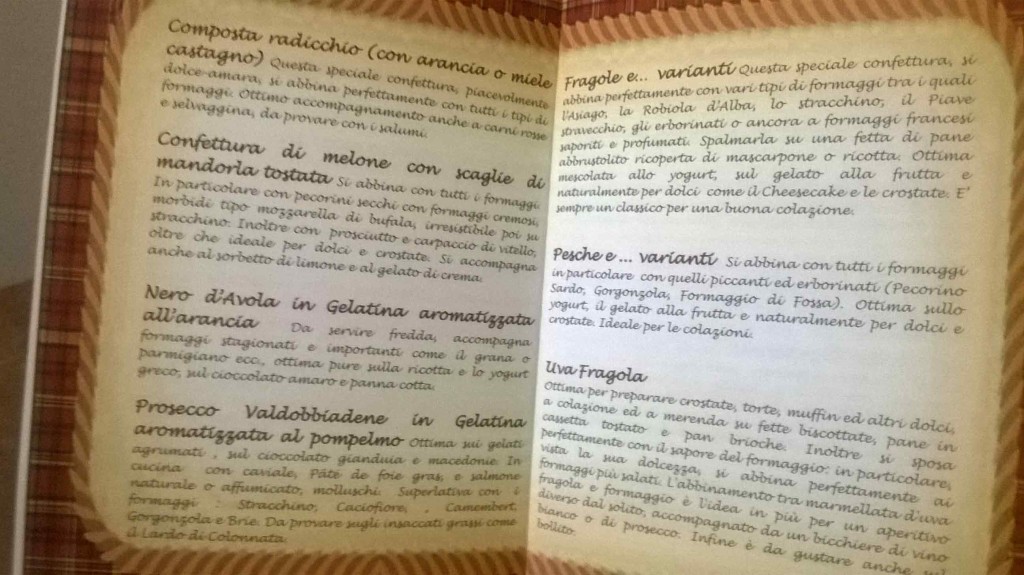 Composta radicchio (con arancia o miele
castagno) Questa speciale confettura, piacevolmente
dolce-amara, si abbina perfettamente con tutti i tipi di
formaggi. Ottimo accompagnamento anche a carni rosse
e selvaggina, da provare con i salumi.
Confettura di melone con scaglie di
mandorla tostata Si abbina con tutti i formaggi.
In particolare con pecorini secchi con formaggi cremosi,
morbidi tipo mozzarella di bufala, irresistibile poi su
stracchino. Inoltre con prosciutto e carpaccio di vitello,
oltre che ideale per dolci e crostate. Si accompagna
anche al sorbetto di limone e al gelato di crema.
Nero d'Avola in Gelatina aromatizzata
all'arancia Da servire fredda, accompagna
formaggi stagionati e importanti come il grana o
parmigiano ecc., ottima pure sulla ricotta e lo yogurt
greco, sul cioccolato amaro e panna cotta.
Prosecco Valdobbiadene in Gelatina
aromatizzata al pompelmo Ottima sui gelati
agrumati , sul cioccolato gianduia e macedonie. In
cucina con caviale, Pâte de foie gras, e salmone
naturale o affumicato, molluschi. Superlativa con i
formaggi : Stracchino, Caciofiore, , Camembert,
Gorgonzola e Brie. Da provare sugli insaccati grassi come
il Lardo di Colonnata.
Fragole e... varianti Questa speciale confettura, si
abbina perfettamente con vari tipi di formaggi tra i quali
l'Asiago, la Robiola d'Alba, lo stracchino, il Piave
stravecchio, gli erborinati o ancora a formaggi francesi
saporiti e profumati. Spalmarla su una fetta di pane
abbrustolito ricoperta di mascarpone o ricotta. Ottima
mescolata allo yogurt, sul gelato alla frutta e
naturalmente per dolci come il Cheesecake e le crostate. E'
sempre un classico per una buona colazione.
Pesche e ... varianti Si abbina con tutti i formaggi
in particolare con quelli piccanti ed erborinati (Pecorino
Sardo, Gorgonzola, Formaggio di Fossa). Ottima sullo
yogurt, il gelato alla frutta e naturalmente per dolci e
crostate. Ideale per le colazioni.
Uva Fragola
Ottima per preparare crostate, torte, muffin ed altri dolci,
a colazione ed a merenda su fette biscottate, pane in
cassetta tostato e pan brioche. Inoltre si sposa
perfettamente con il sapore del formaggio: in particolare,
vista la sua dolcezza, si abbina perfettamente ai
formaggi più salati. L'abbinamento tra marmellata d'uva
fragola e formaggio è l'idea in più per un aperitivo
diverso dal solito, accompagnato da un bicchiere di vino
bianco o di prosecco. Infine è da gustare anche sul
bollito.